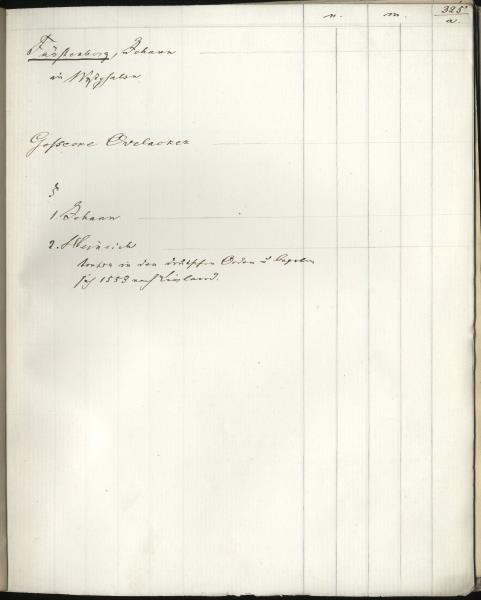 n. m. 325
a.
Fürstenberg, Johann
in Westphalen
Gosscone Ovelacker
§
1. Johann
2. Heinrich
traten in den deutschen Orden u. begaben
sich 1553 nach Livland.